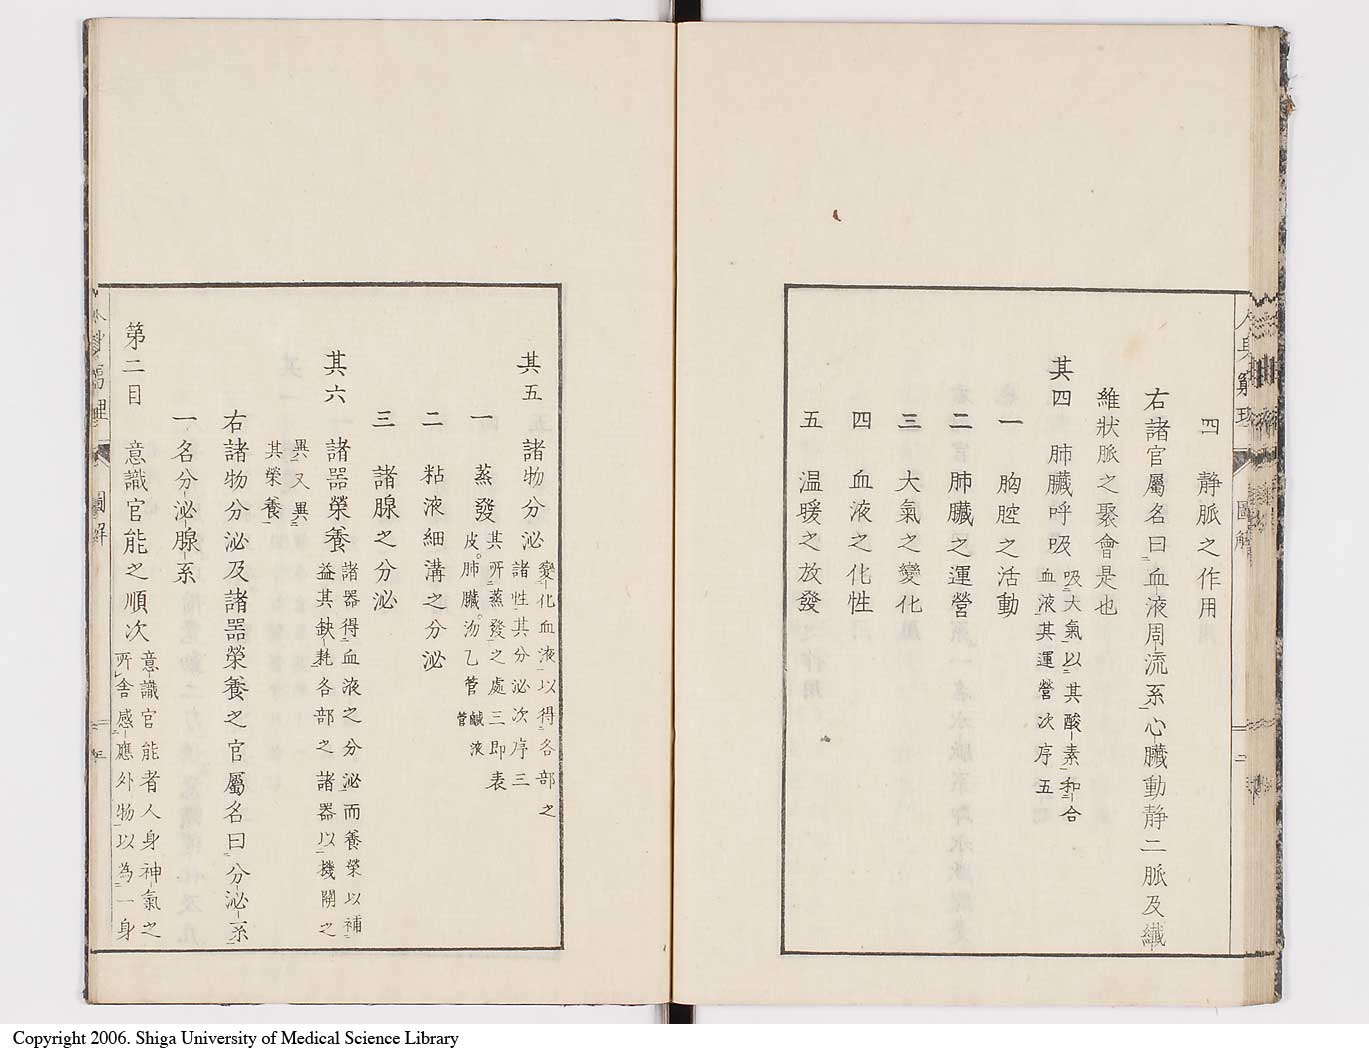 四 静脈之作用
右諸官屬名曰血液周流系心臓動静二脈及纎
維状脈之聚會是也
其四 肺臓呼吸 吸大氣以其酸素和合
血液其運營次序五
一 胸腔之活動
二 肺臓之運營
三 大氣之變化
四 血液之化性
五 温暖之放發
圖解
二
其五 諸物分泌 變化血液以得各部之
諸性其分泌次序三
一 蒸發 其所蒸發之處三即表
皮。肺臓。沕乙管 鹹液
管
二 粘液細溝之分泌
三 諸腺之分泌
其六 諸器榮養 諸器得血液之分泌而養榮以補
益其缺耗各部之諸器以機關之
異又異
其榮養
右諸物分泌及諸器榮養之官屬名曰分泌系
一名分泌腺系
第二目 意識官能之順次 意識官能者人身神氣之
所舎感應外物以為一身
圖解
Copyright 2006. Shiga University of Medical Science Library